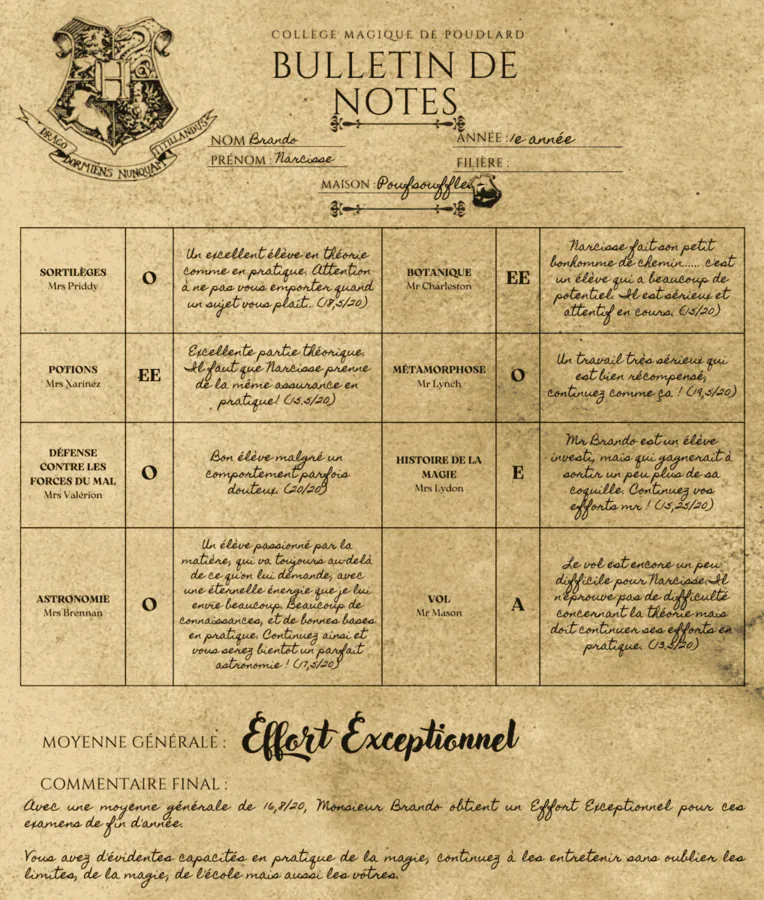 COLLÈGE MAGIQUE DE POUDLARD
BULLETIN DE
NOTES
DRACO DORMIENS NUNQUAM TITILLANDUS
NOM Brando
ANNÉE : 1e année
PRÉNOM : Narcisse
FILIÈRE :
MAISON : Poufsouffle
SORTILÈGES
Mrs Priddy
O
Un excellent élève en théorie
comme en pratique. Attention
à ne pas vous emporter quand
un sujet vous plaît.. (18,5/20)
BOTANIQUE
Mr Charleston
EE
Narcisse fait son petit
bonhomme de chemin..... c'est
un élève qui a beaucoup de
potentiel. Il est sérieux et
attentif en cours. (15/20)
POTIONS
Mrs Xarinez
EE
Excellente partie théorique.
Il faut que Narcisse prenne
de la même assurance en
pratique! (15.5/20)
MÉTAMORPHOSE
Mr Lynch
O
Un travail très sérieux qui
est bien récompensé,
continuez comme ça ! (19,5/20)
DÉFENSE
CONTRE LES
FORCES DU MAL
Mrs Valérion
O
Bon élève malgré un
comportement parfois
douteux. (20/20)
HISTOIRE DE LA
MAGIE
Mrs Lydon
E
Mr Brando est un élève
investi, mais qui gagnerait à
sortir un peu plus de sa
coquille. Continuez vos
efforts mr ! (15,25/20)
ASTRONOMIE
Mrs Brennan
O
Un élève passionné par la
matière, qui va toujours au-delà
de ce qu'on lui demande, avec
une éternelle énergie que je lui
envie beaucoup. Beaucoup de
connaissances, et de bonnes bases
en pratique. Continuez ainsi et
vous serez bientôt un parfait
astronomie ! (17,5/20)
VOL
Mr Mason
A
Le vol est encore un peu
difficile pour Narcisse. Il
n'éprouve pas de difficulté
concernant la théorie mais
doit continuer ses efforts en
pratique. (13,5/20)
MOYENNE GÉNÉRALE : Effort Exceptionnel
COMMENTAIRE FINAL :
Avec une moyenne générale de 16,8/20, Monsieur Brando obtient un Effort Exceptionnel pour ces
examens de fin d'année.
Vous avez d'évidentes capacités en pratique de la magie, continuez à les entretenir sans oublier les
limites, de la magie, de l'école mais aussi les vôtres.